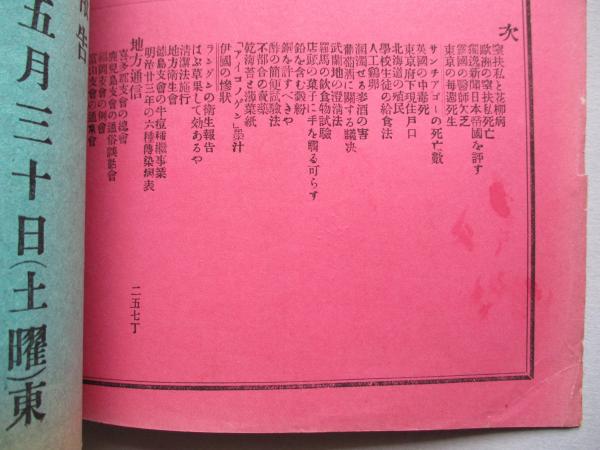 次
窒扶私と花柳病
歐洲の窒扶私死亡
獨逸新聞日本帝國を評す
露國の醫師乏乏
東京の毎週死生
サンチアゴーの死亡數
英國の中毒死
東京府下現住戸口
北海道の殖民
學校生徒の給食法
人工鷄卵
溷濁せる麥酒の害
葡萄酒に關する議决
武蘭地の澄清法
羅馬の飲食物試驗
店頭の菓子に手を觸る可らす
鉛を含む穀粉
銅を許すべきや
酢の簡便試驗法
不都合の賣藥
乾海苔と淺草紙
「アイコノゲン」墨汁
伊國の慘狀
ラングンの衛生報告
はぶ草果して効あるや
清潔法施行
地方衛生會
徳島支會の牛痘種繼事業
明治廿三年の六種傳染病表
地方通信
喜多郡支會の總會
鹿兒島支會の通俗談話會
福岡支會の例會
富山支會の通常會
二五七丁
告
五月三十日(土曜)東